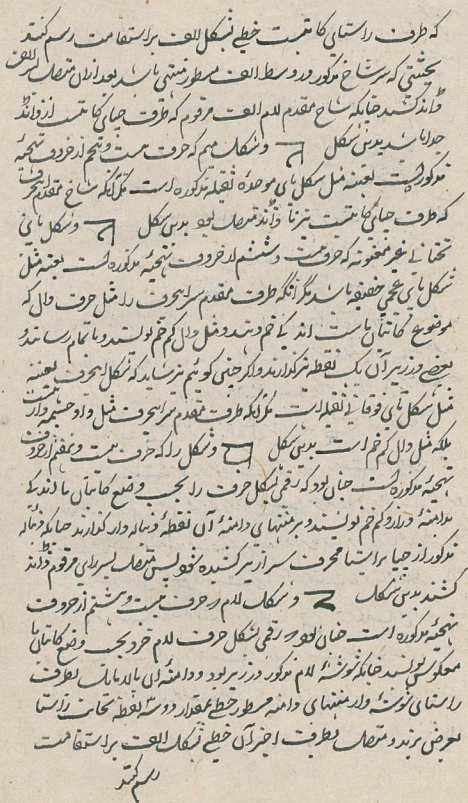 که طرف راستای کاتبست خطی بشکل الف براستقامت رسم کنند
بحیثیتی که سر شاخ مذکور در وسط الف مسطور منتهی باشد بعد ازان متصل سر الف
کشند چنانکه شاخ مقدم لام الف مرقوم که طرف چپای کاتبست از
جدا باشد بدین شکل و شکل میم که حرف بیست و پنجم از حروف تهجیه
مذکوره است بعینه مثل شکل بای موحده ثقیله مذکوره است مگر آنکه شاخ مقدم این حرف
که طرف چپای کاتبست نیز با متصل بود بدین شکل و شکل یای
تحتانی غیر که حرف بیست و ششم از حروف تهجیه مذکوره است بعینه مثل
شکل بای عجمی خفیفه باشد مگر آنکه طرف مقدم سر این حرف را مثل حرف دال که
موضوع کاتبان ماست اندکی خم دهند و مثل دال کم خم نویسند و باتمام رسانند و
بعضی در زیر آن یک نقطه نیز گذارند و اگر چنین گوئیم نیز شاید که شکل این حرف بعینه
مثل شکل تای فوقانی ثقیله است مگر آنکه طرف مقدم سر این حرف مثل واو چشمه دار نیست
بلکه مثل دال کم خم است بدین شکل و شکل را که حرف بیست و هفتم از حروف
تهجیه مذکوره است چنان بود که رقمی بشکل حرف را بحسب وضع کاتبان ما اندکی
دامنه دراز و کم خم نویسند و بر منتهای دامنه آن نقطهٔ دنباله دار گذارند چنانکه دنباله
مذکور از چپا براستا محرف سرازیر کشیده بنویس متصل بسر رای مرقوم
کشند بدین شکل و شکل لام که حرف بیست و هشتم از حروف
تهجیه مذکوره است چنان بود که رقمی بشکل حرف لام خود بحسب وضع کاتبان ما
معکوس نویسند چنانکه شوشهٔ لام مذکور در زیر بود و دامنهٔ آن بالا بطرف
راستای شوشه و از منتهای دامنه مسطور خطی بمقدار دو سه نقطه بجانب راستا
بعرض برند و متصل بطرف اخیر آن خطی بشکل الف براستقامت
رسم کنند